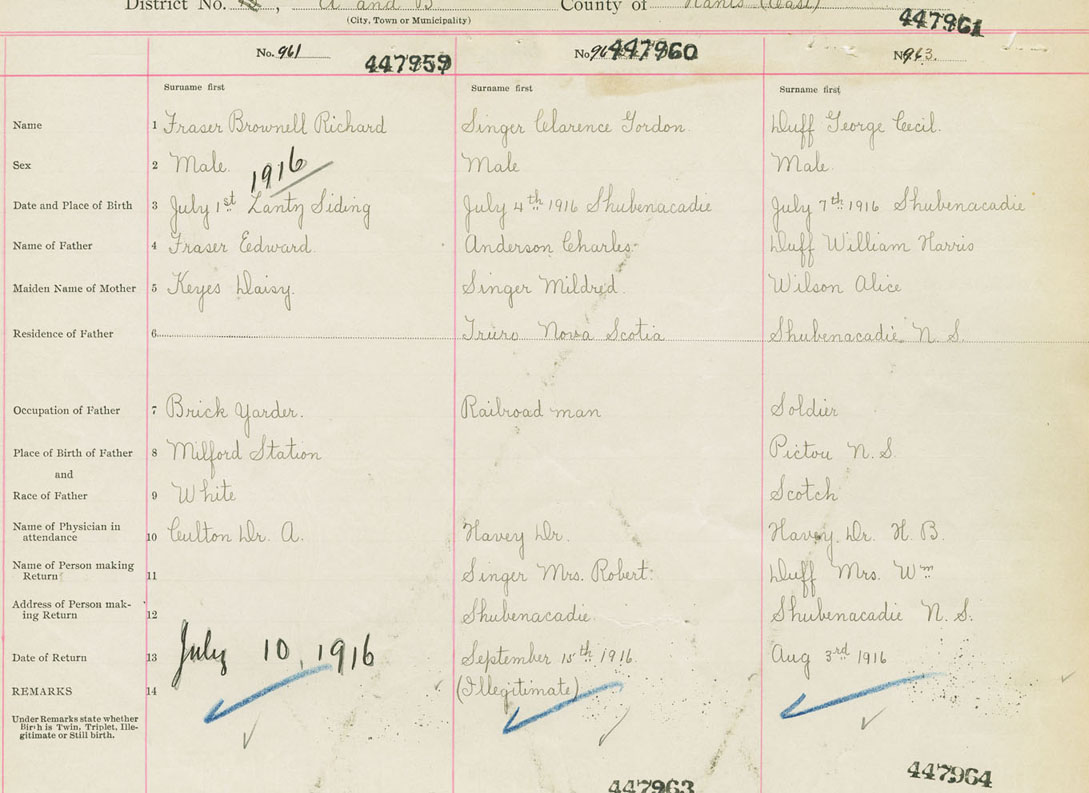 District No. , A and B County of Hants (East)
(City, Town or Municipality)
447961
No. 961 447959 No. 96 447960 No. 963.
Surname first Surname first Surname first
Name 1 Fraser Brownell Richard Singer Clarence Gordon. Duff George Cecil.
Sex 2 Male. Male Male.
1916
Date and Place of Birth 3 July 1st Lantz Siding July 4th 1916 Shubenacadie July 7th 1916 Shubenacadie
Name of Father 4 Fraser Edward. Anderson Charles. Duff William Harris
Maiden Name of Mother 5 Keyes Daisy. Singer Mildred. Wilson Alice
Residence of Father 6 Truro Nova Scotia Shubenacadie N. S.
Occupation of Father 7 Brick Yarder. Railroad man Soldier
Place of Birth of Father 8 Milford Station Pictou N. S.
and
Race of Father 9 White Scotch
Name of Physician in
attendance 10 Culton Dr. A. Havey Dr. Havey. Dr. H. B.
Name of Person making
Return 11 Singer Mrs. Robert. Duff Mrs. Wm
Address of Person mak-
ing Return 12 Shubenacadie. Shubenacadie N. S.
Date of Return 13 July 10, 1916 September 15th 1916. Aug 3rd 1916
REMARKS 14 (Illegitimate)
Under Remarks state whether
Birth is Twin, Triplet, Ille-
gitimate or Still birth.
447963 447964